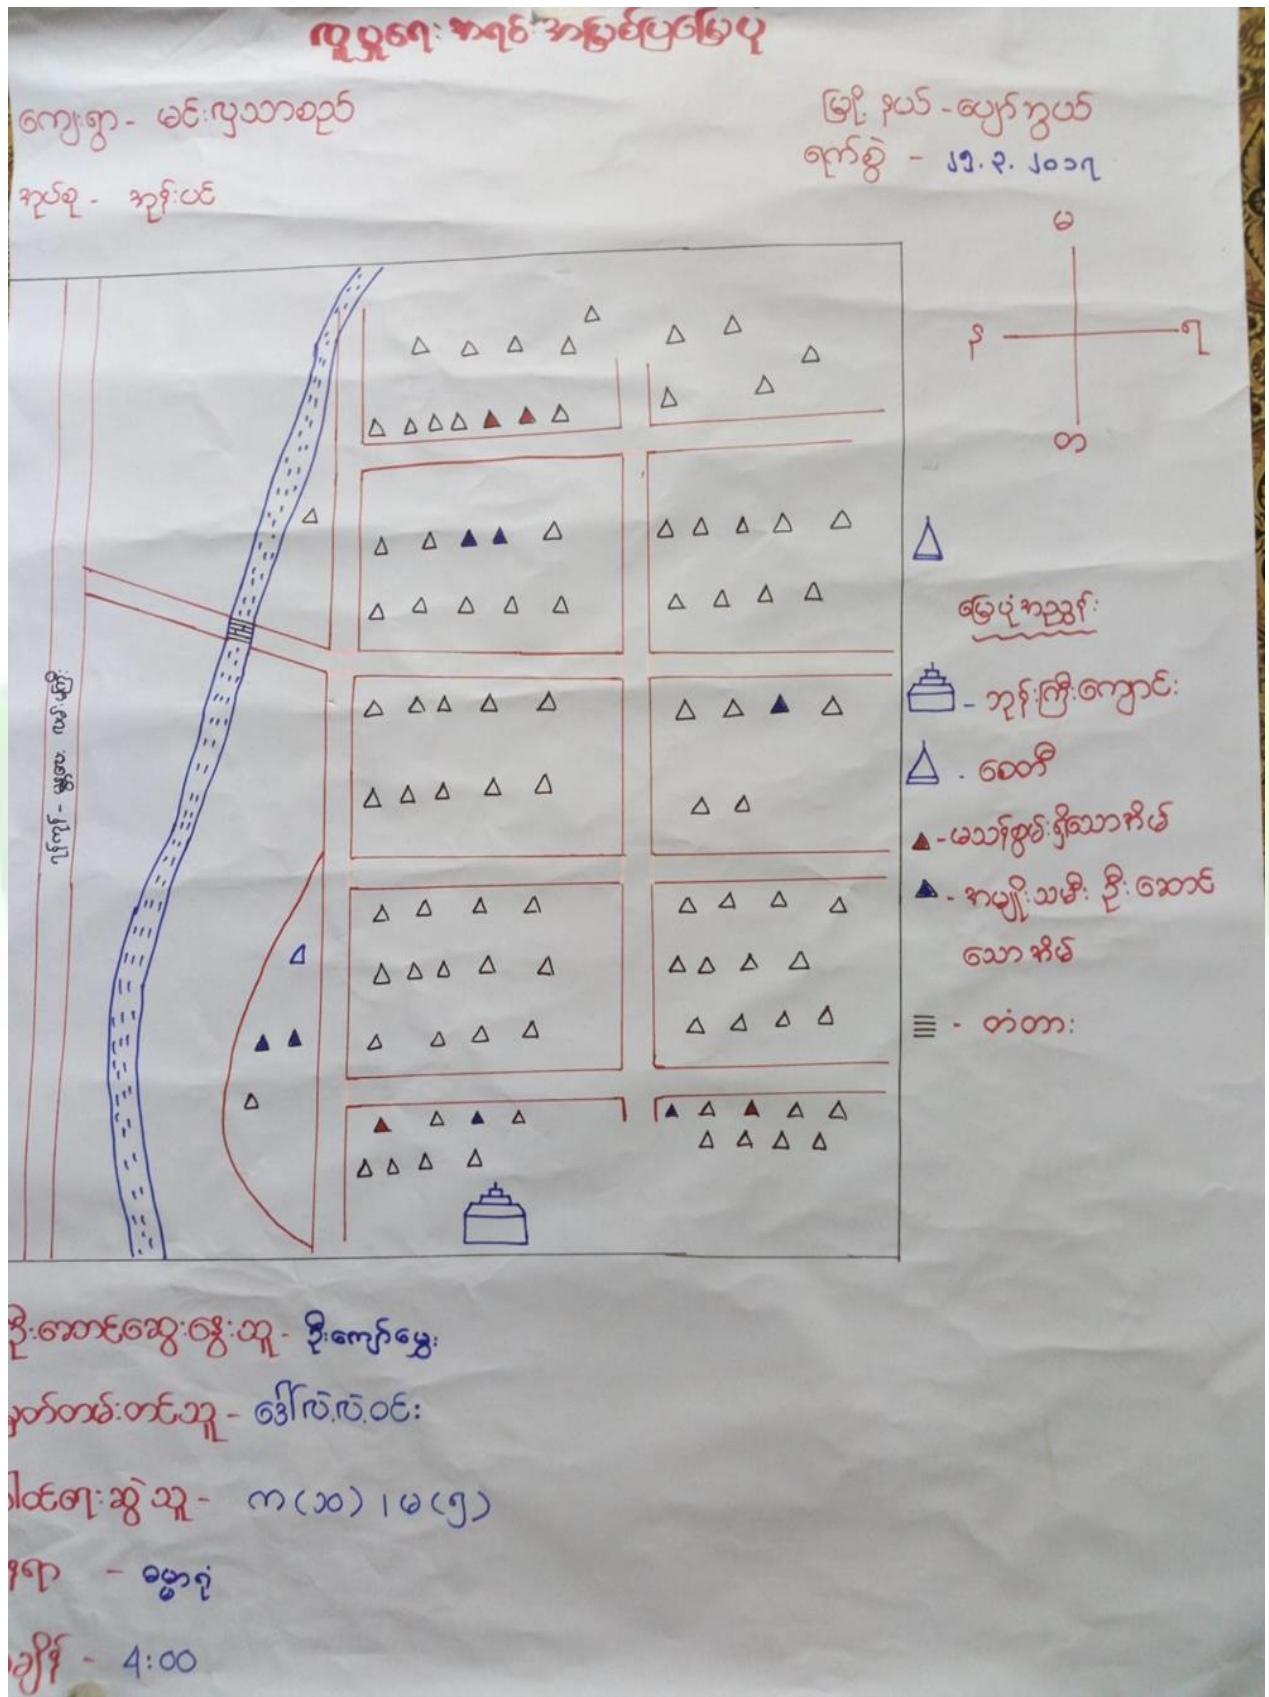 လူမှုရေး အရင်းအမြစ်ပြမြေပုံ
ကျေးရွာ - မင်းလှသာစည်
မြို့နယ် - ပျော်ဘွယ်
ရက်စွဲ - ၂၅.၃.၂၀၁၇
အုပ်စု - အုန်းပင်
မ
န
ရ
တ
မြေပုံအညွှန်း
- ဘုန်းကြီးကျောင်း
- စေတီ
- မသန်စွမ်းရှိသောအိမ်
- အမျိုးသမီး ဦးဆောင်
သောအိမ်
- တံတား
ဦးဆောင်ဆွေးနွေးသူ - ဦးကျော်မွှေး
မှတ်တမ်းတင်သူ - ဒေါ်လဲ့လဲ့ဝင်း
ပါဝင်ရေးဆွဲသူ - က (၁၀) ၊ မ (၅)
နေရာ - ဓမ္မာရုံ
အချိန် - 4:00